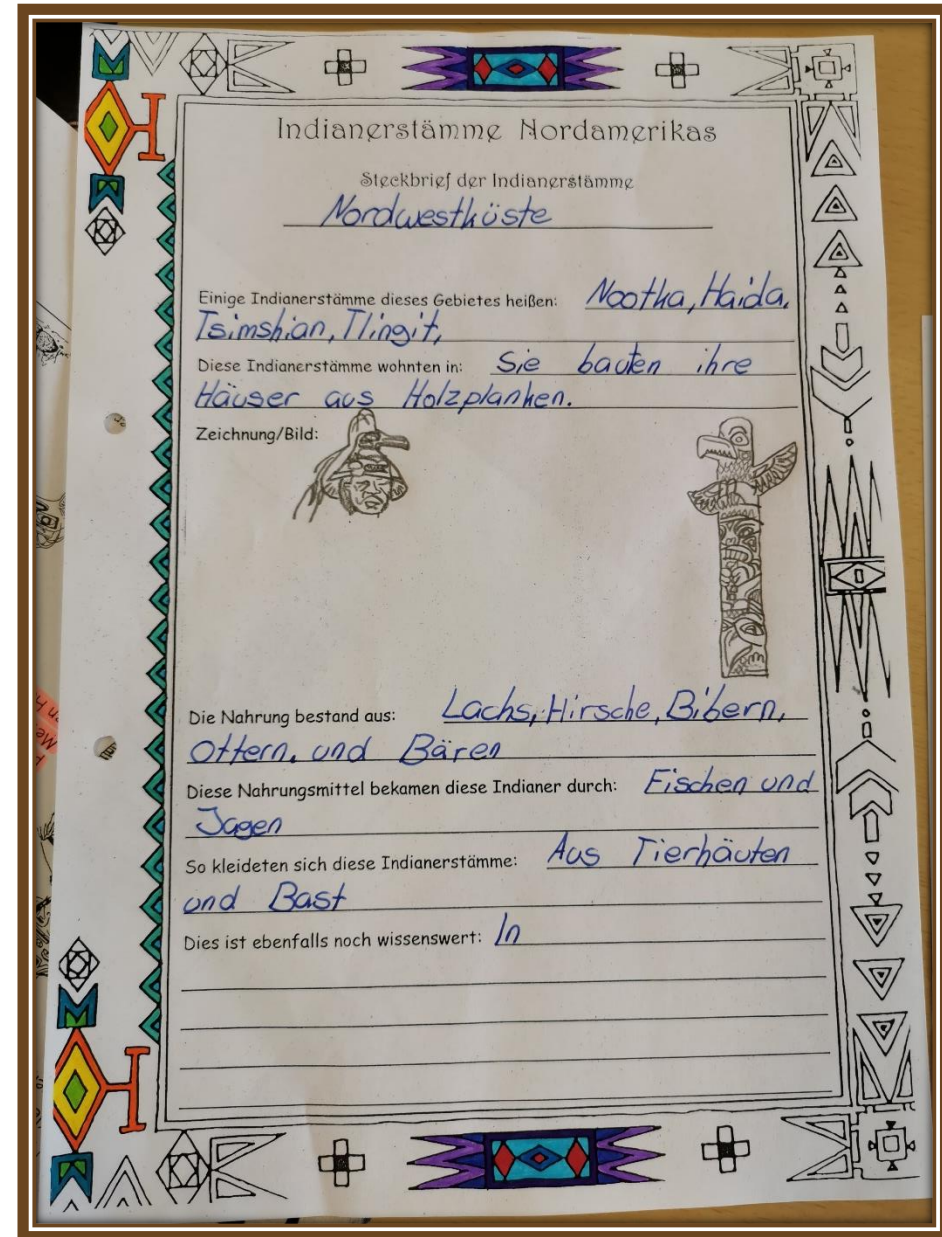 Indianerstämme Nordamerikas
Steckbrief der Indianerstämme
Nordwestküste
Einige Indianerstämme dieses Gebietes heißen: Nootka, Haida,
Tsimshian, Tlingit,
Diese Indianerstämme wohnten in: Sie bauten ihre
Häuser aus Holzplanken.
Zeichnung/Bild:
Die Nahrung bestand aus: Lachs, Hirsche, Bibern,
Ottern, und Bären
Diese Nahrungsmittel bekamen diese Indianer durch: Fischen und
Jagen
So kleideten sich diese Indianerstämme: Aus Tierhäuten
und Bast
Dies ist ebenfalls noch wissenswert: In